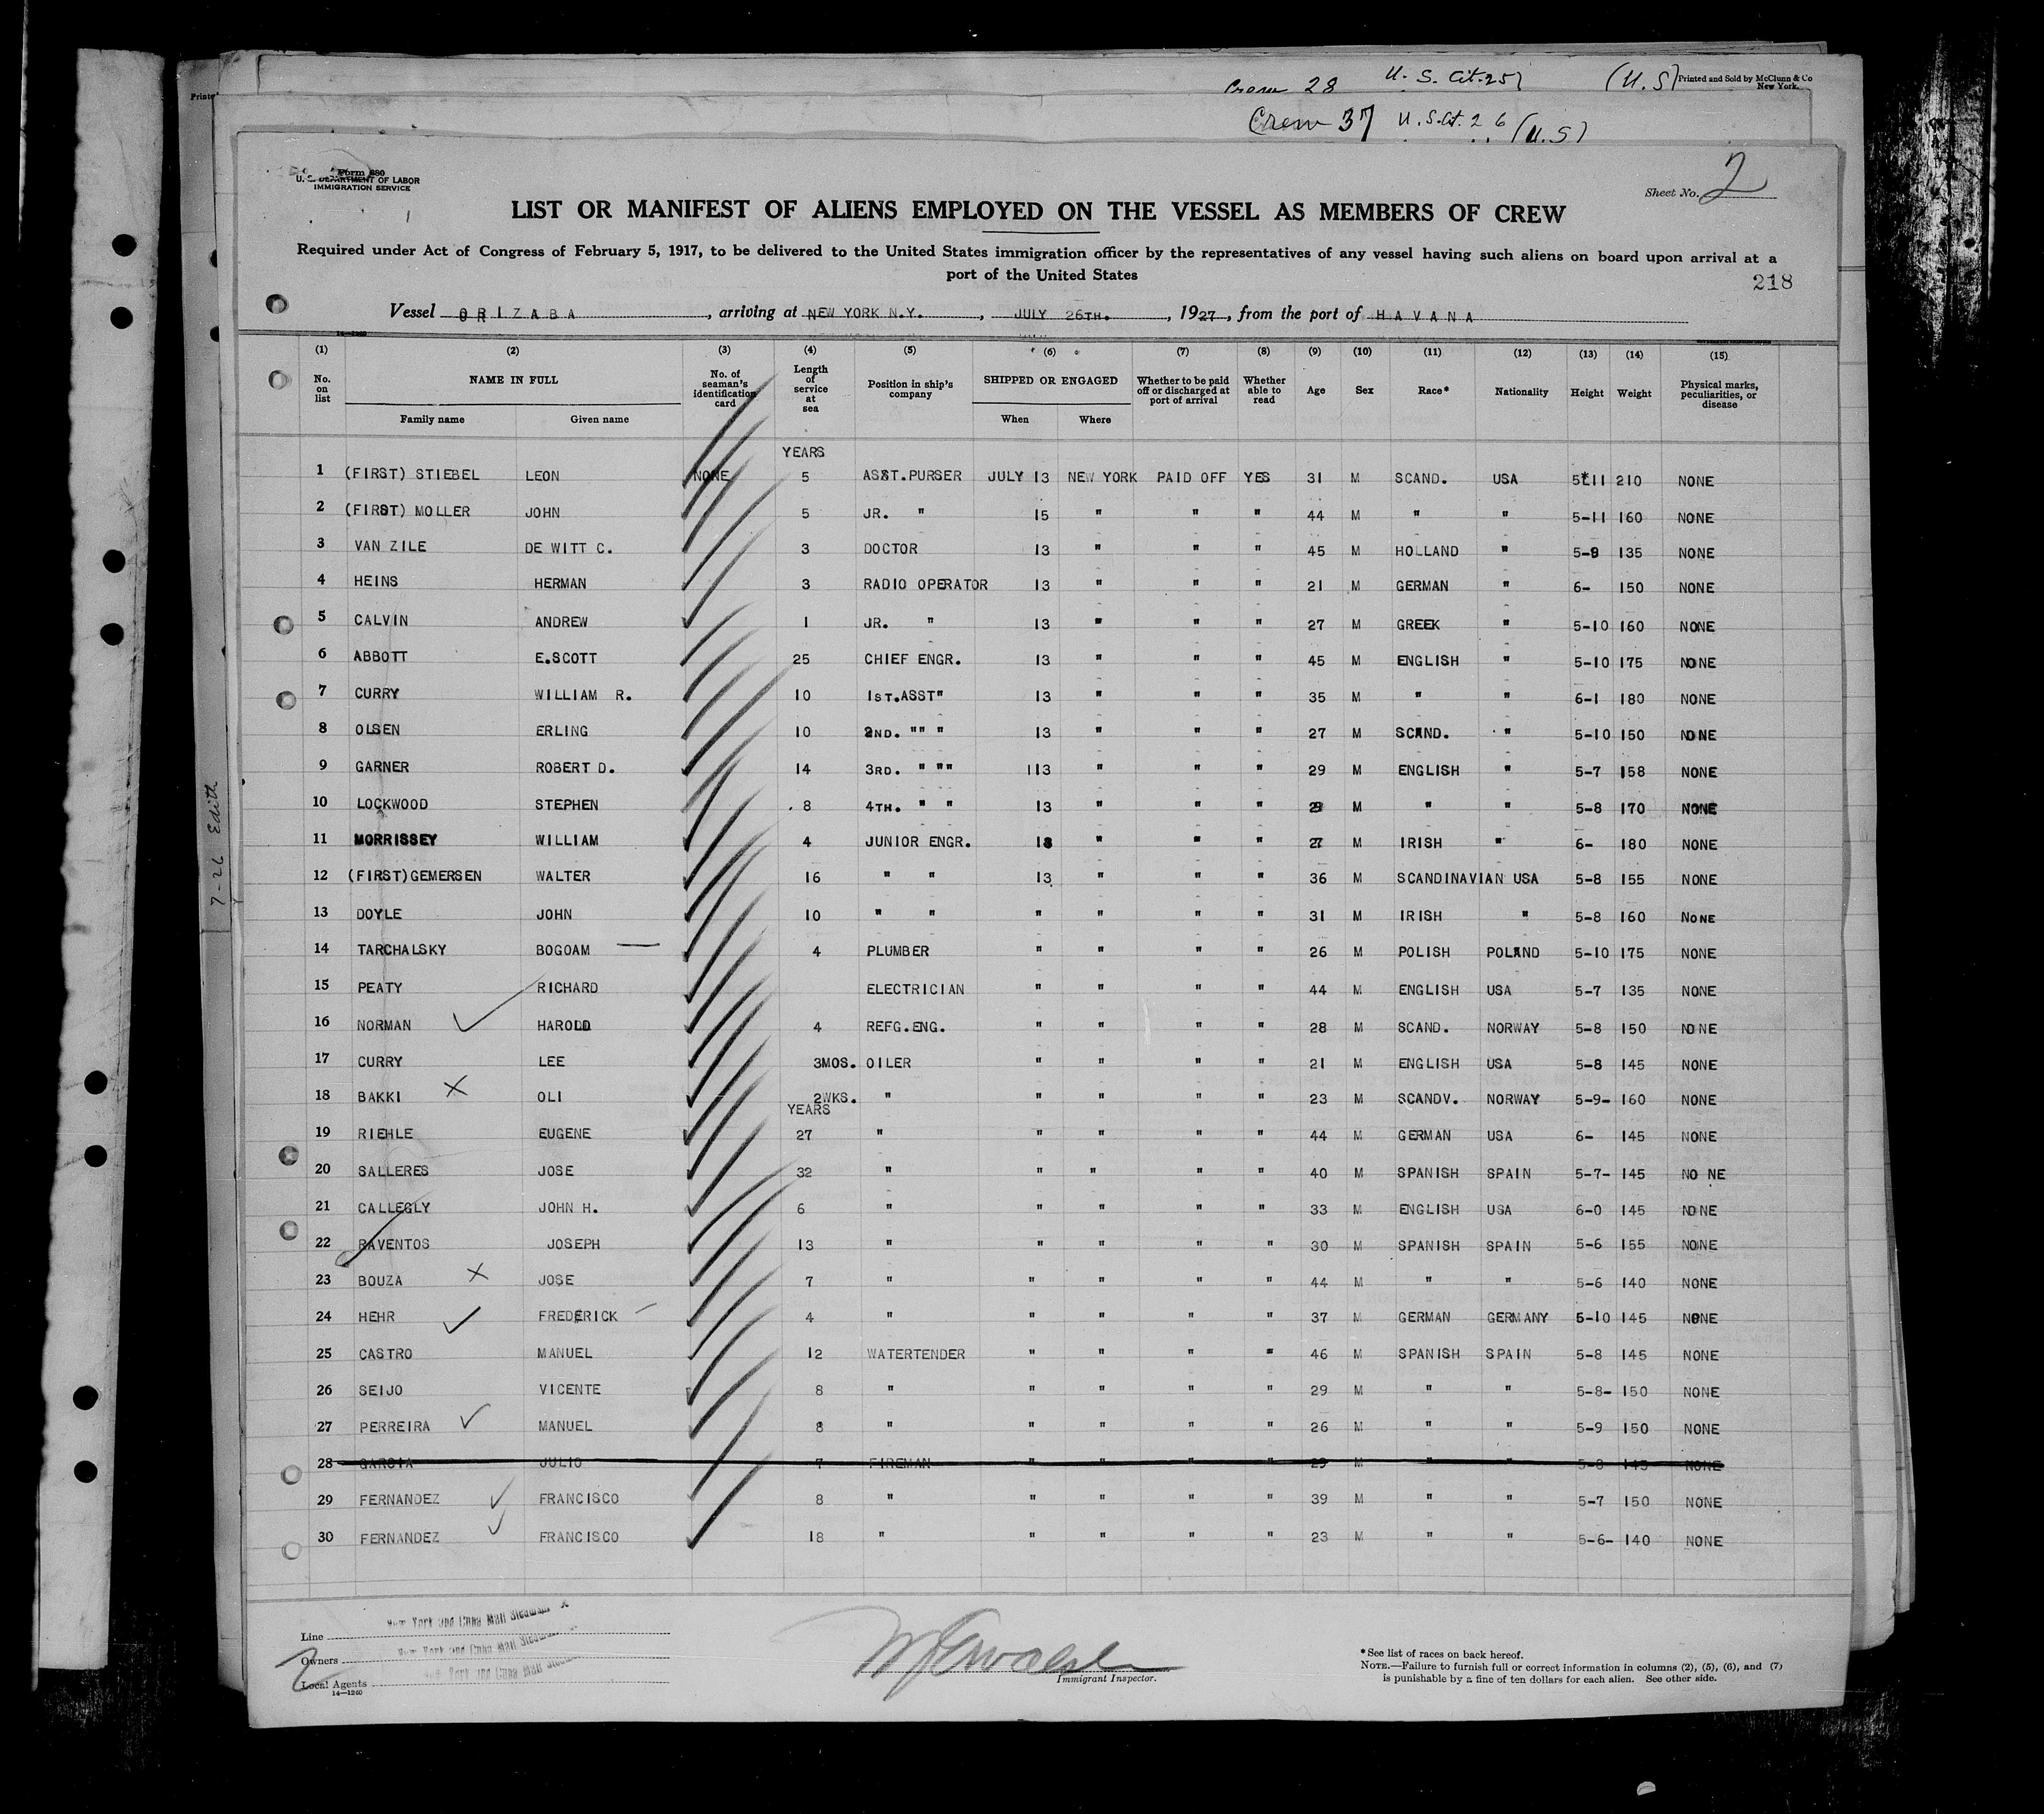 Printed
Crew 28 U. S. Cit. 25 (U.S) Printed and Sold by McClunn & Co
New York.
Crew 37 U. S. Cit. 26 (U.S)
Form 680
U. S. DEPARTMENT OF LABOR
IMMIGRATION SERVICE
Sheet No. 2
LIST OR MANIFEST OF ALIENS EMPLOYED ON THE VESSEL AS MEMBERS OF CREW
Required under Act of Congress of February 5, 1917, to be delivered to the United States immigration officer by the representatives of any vessel having such aliens on board upon arrival at a
port of the United States
218
Vessel ORIZABA, arriving at NEW YORK N.Y., JULY 26TH., 1927, from the port of HAVANA
14-1260
(1) (2) (3) (4) (5) (6) (7) (8) (9) (10) (11) (12) (13) (14) (15)
No. on list NAME IN FULL Family name Given name No. of seaman's identification card Length of service at sea Position in ship's company SHIPPED OR ENGAGED When Where Whether to be paid off or discharged at port of arrival Whether able to read Age Sex Race* Nationality Height Weight Physical marks, peculiarities, or disease
YEARS
1 (FIRST) STIEBEL LEON NONE 5 ASST.PURSER JULY 13 NEW YORK PAID OFF YES 31 M SCAND. USA 5-11 210 NONE
2 (FIRST) MOLLER JOHN 5 JR. " 15 " " " 44 M " " 5-11 160 NONE
3 VAN ZILE DE WITT C. 3 DOCTOR 13 " " " 45 M HOLLAND " 5-9 135 NONE
4 HEINS HERMAN 3 RADIO OPERATOR 13 " " " 21 M GERMAN " 6- 150 NONE
5 CALVIN ANDREW 1 JR. " 13 " " " 27 M GREEK " 5-10 160 NONE
6 ABBOTT E.SCOTT 25 CHIEF ENGR. 13 " " " 45 M ENGLISH " 5-10 175 NONE
7 CURRY WILLIAM R. 10 1ST.ASST" 13 " " " 35 M " " 6-1 180 NONE
8 OLSEN ERLING 10 2ND. "" " 13 " " " 27 M SCAND. " 5-10 150 NONE
9 GARNER ROBERT D. 14 3RD. " "" 113 " " " 29 M ENGLISH " 5-7 158 NONE
10 LOCKWOOD STEPHEN 8 4TH. " " 13 " " " M " " 5-8 170 NONE
11 MORRISSEY WILLIAM 4 JUNIOR ENGR. 13 " " " 27 M IRISH " 6- 180 NONE
12 (FIRST)GEMERSEN WALTER 16 " " 13 " " " 36 M SCANDINAVIAN USA 5-8 155 NONE
13 DOYLE JOHN 10 " " " " " " 31 M IRISH " 5-8 160 NONE
14 TARCHALSKY BOGOAM 4 PLUMBER " " " " 26 M POLISH POLAND 5-10 175 NONE
15 PEATY RICHARD ELECTRICIAN " " " " 44 M ENGLISH USA 5-7 135 NONE
16 NORMAN HAROLD 4 REFG.ENG. " " " " 28 M SCAND. NORWAY 5-8 150 NONE
17 CURRY LEE 3MOS. OILER " " " " 21 M ENGLISH USA 5-8 145 NONE
18 BAKKI OLI 2WKS. " " " " " 23 M SCANDV. NORWAY 5-9- 160 NONE
YEARS
19 RIEHLE EUGENE 27 " " " " " 44 M GERMAN USA 6- 145 NONE
20 SALLERES JOSE 32 " " " " " 40 M SPANISH SPAIN 5-7- 145 NO NE
21 CALLEGLY JOHN H. 6 " " " " " 33 M ENGLISH USA 6-0 145 NONE
22 RAVENTOS JOSEPH 13 " " " " " 30 M SPANISH SPAIN 5-6 155 NONE
23 BOUZA JOSE 7 " " " " " 44 M " " 5-6 140 NONE
24 HEHR FREDERICK 4 " " " " " 37 M GERMAN GERMANY 5-10 145 NONE
25 CASTRO MANUEL 12 WATERTENDER " " " " 46 M SPANISH SPAIN 5-8 145 NONE
26 SEIJO VICENTE 8 " " " " " 29 M " " 5-8- 150 NONE
27 PERREIRA MANUEL 8 " " " " " 26 M " " 5-9 150 NONE
28 GARCIA JULIO 7 FIREMAN " " " " 29 M " " 5-8 145 NONE
29 FERNANDEZ FRANCISCO 8 " " " " " 39 M " " 5-7 150 NONE
30 FERNANDEZ FRANCISCO 18 " " " " " 23 M " " 5-6- 140 NONE
7-26 Edith
Line New York and Cuba Mail Steamship
Owners New York and Cuba Mail Steamship
Local Agents New York and Cuba Mail Steamship
14-1260
2
Immigrant Inspector.
*See list of races on back hereof.
NOTE.—Failure to furnish full or correct information in columns (2), (5), (6), and (7)
is punishable by a fine of ten dollars for each alien. See other side.